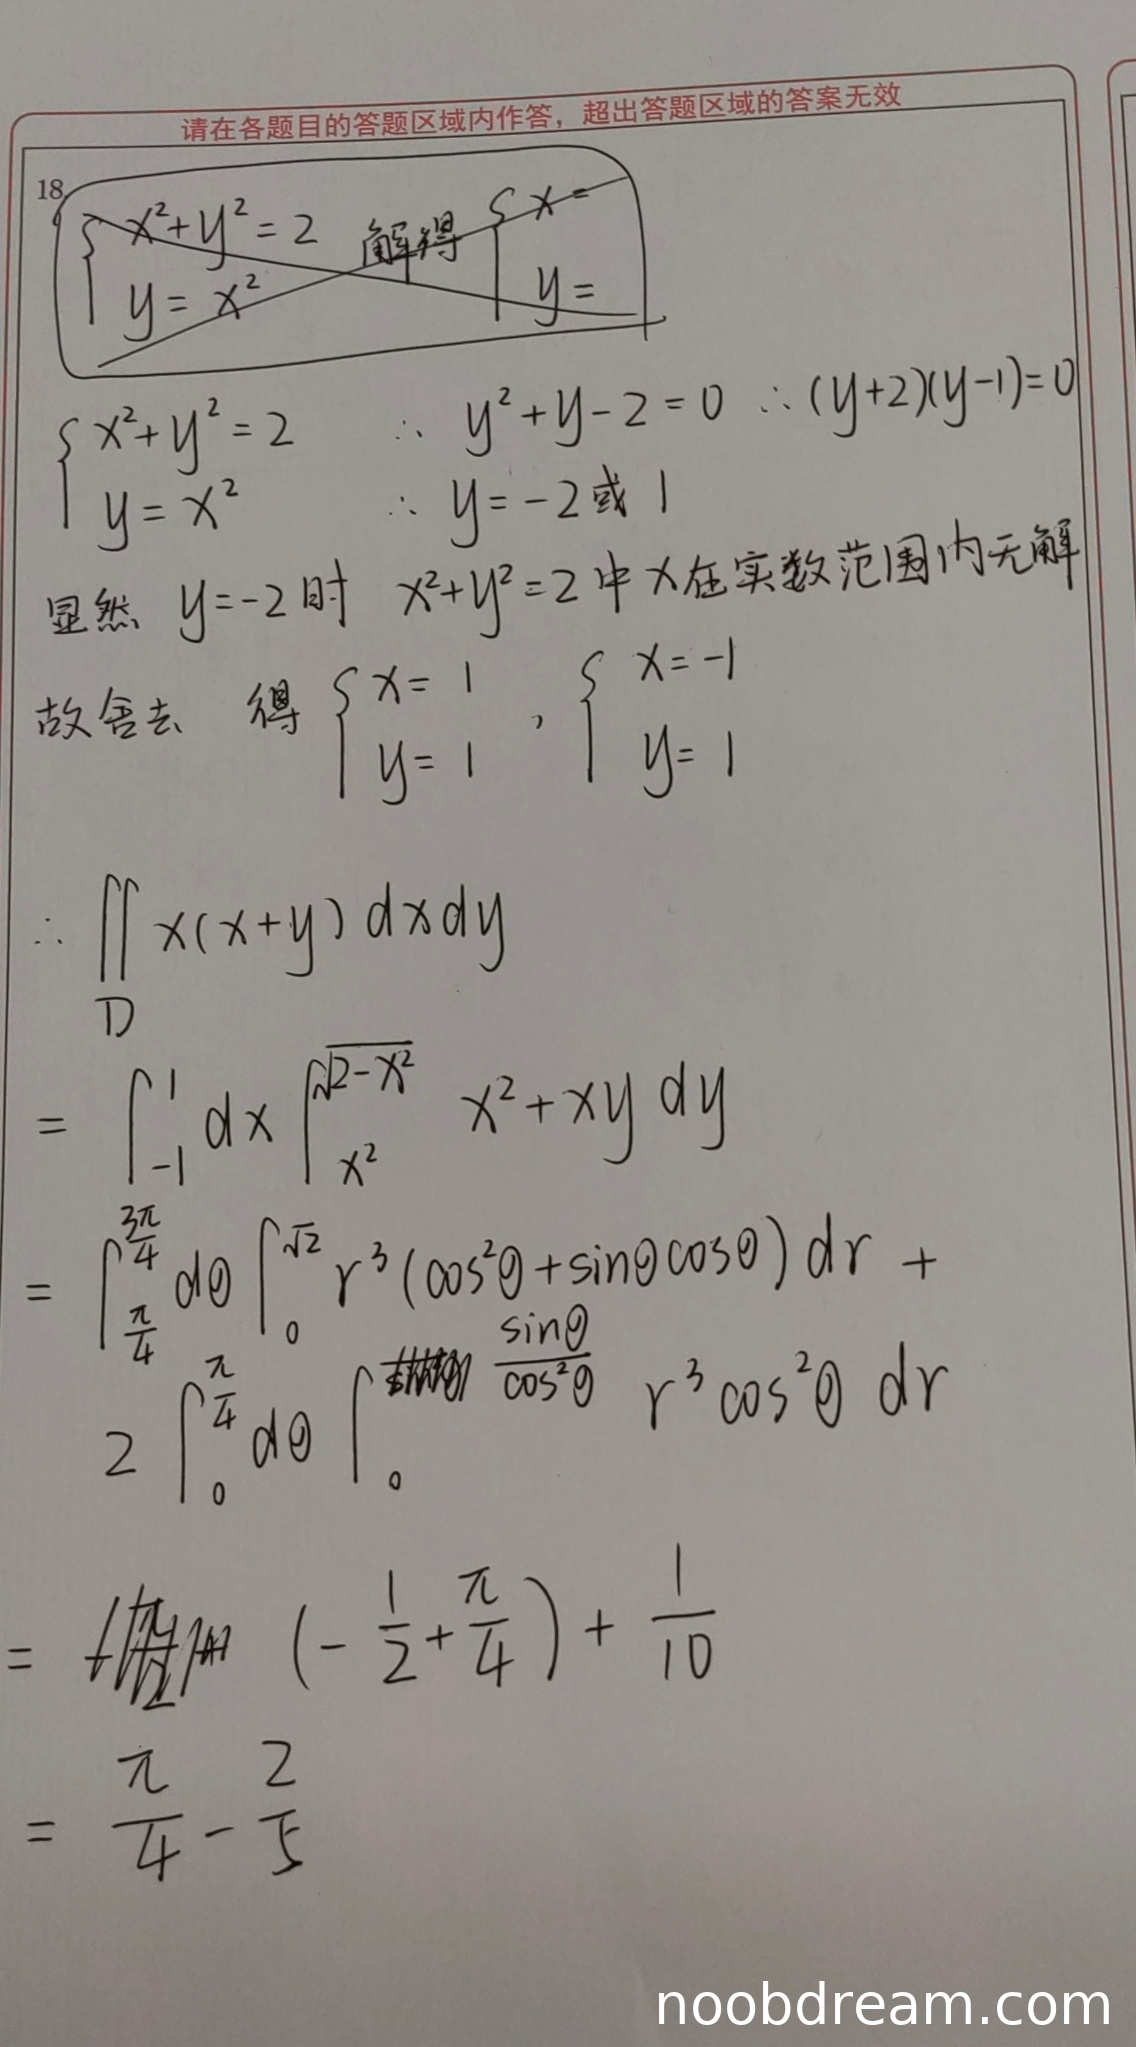 请在各题目的答题区域内作答，超出答题区域的答案无效
18.
{ x²+y²=2 解得 { x=
y=x² y=
{ x²+y²=2 ∴ y²+y-2=0 ∴ (y+2)(y-1)=0
y=x² ∴ y=-2或1
显然 y=-2时 x²+y²=2中x在实数范围内无解
故舍去 得 { x=1 , { x=-1
y=1 y=1
∴ ∬_D x(x+y)dxdy
= ∫_{-1}^{1} dx ∫_{x²}^{√(2-x²)} x²+xy dy
= ∫_{π/4}^{3π/4} dθ ∫_0^{√2} r³(cos²θ+sinθcosθ)dr +
2 ∫_0^{π/4} dθ ∫_0^{sinθ/cos²θ} r³cos²θ dr
= (-1/2+π/4)+1/10
= π/4-2/5
noobdream.com